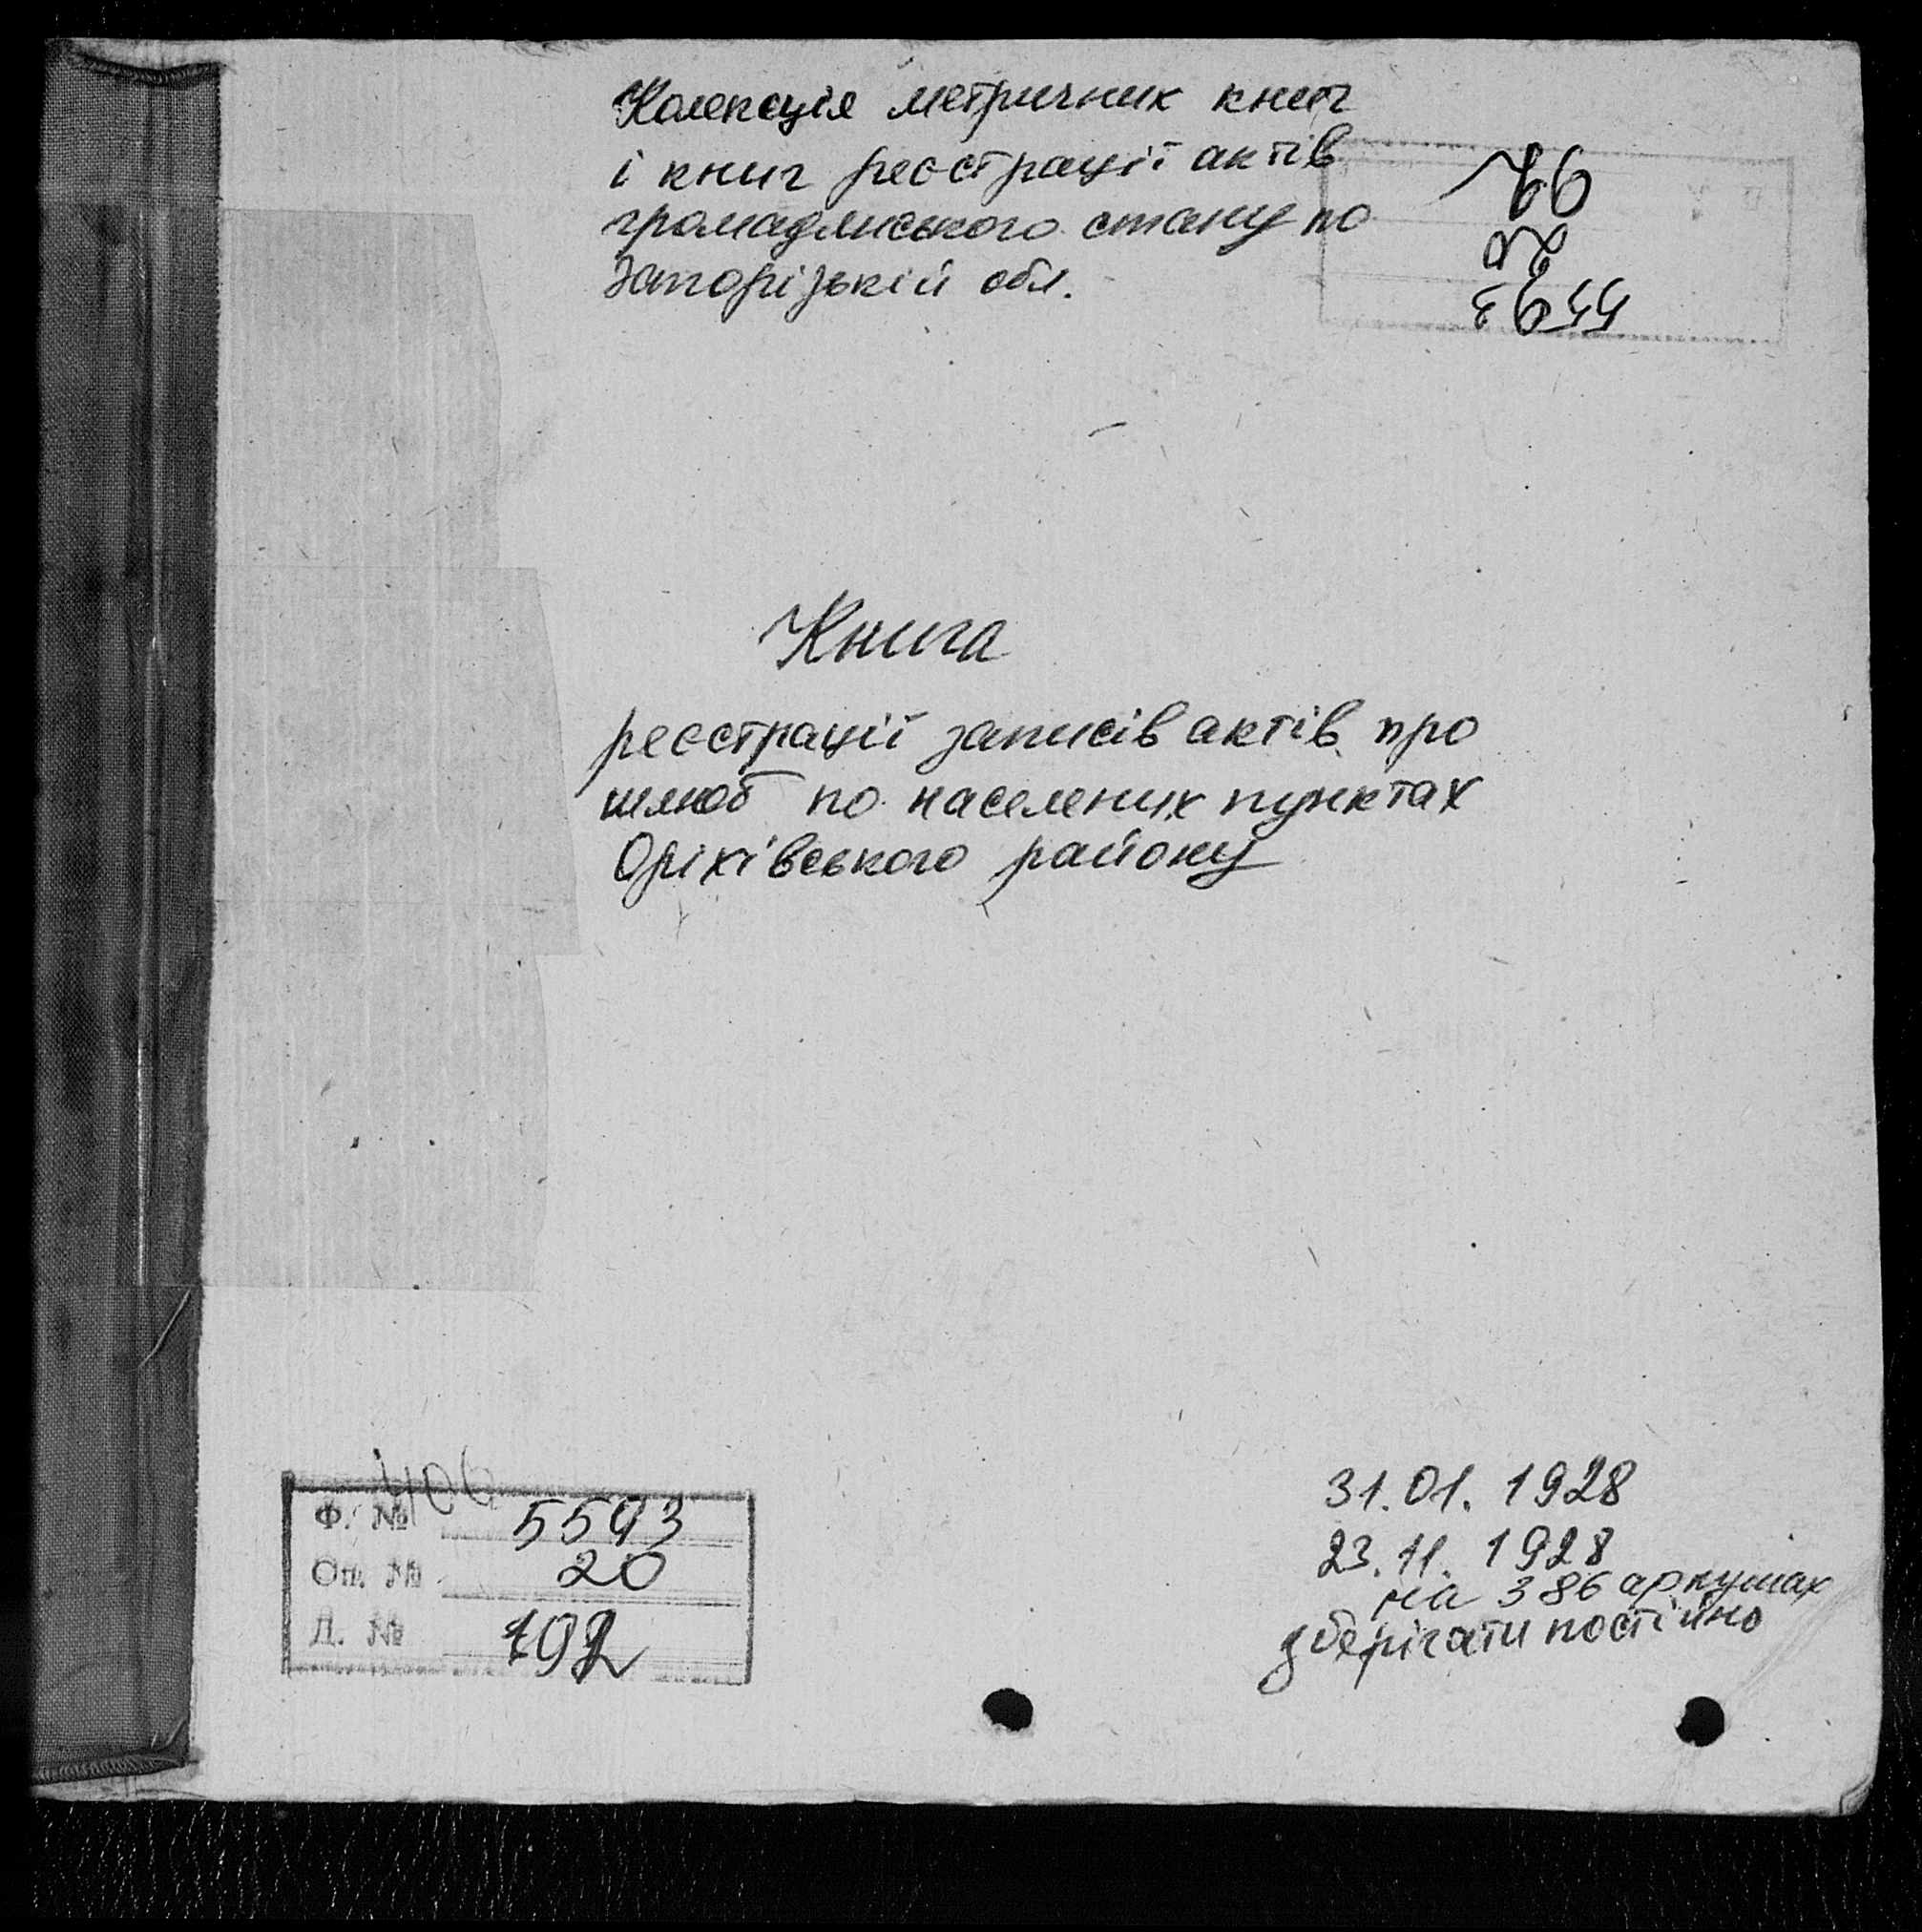 Колекція метричних книг
і книг реєстрації актів
громадянського стану по
Запорізькій обл.
5593
20
Книга
реєстрації записів актів про
шлюб по населених пунктах
Оріхівського району
406
Ф. № 5593
Оп. № 20
Д. № 192
31.01.1928
23.11.1928
на 386 аркушах
зберігати постійно